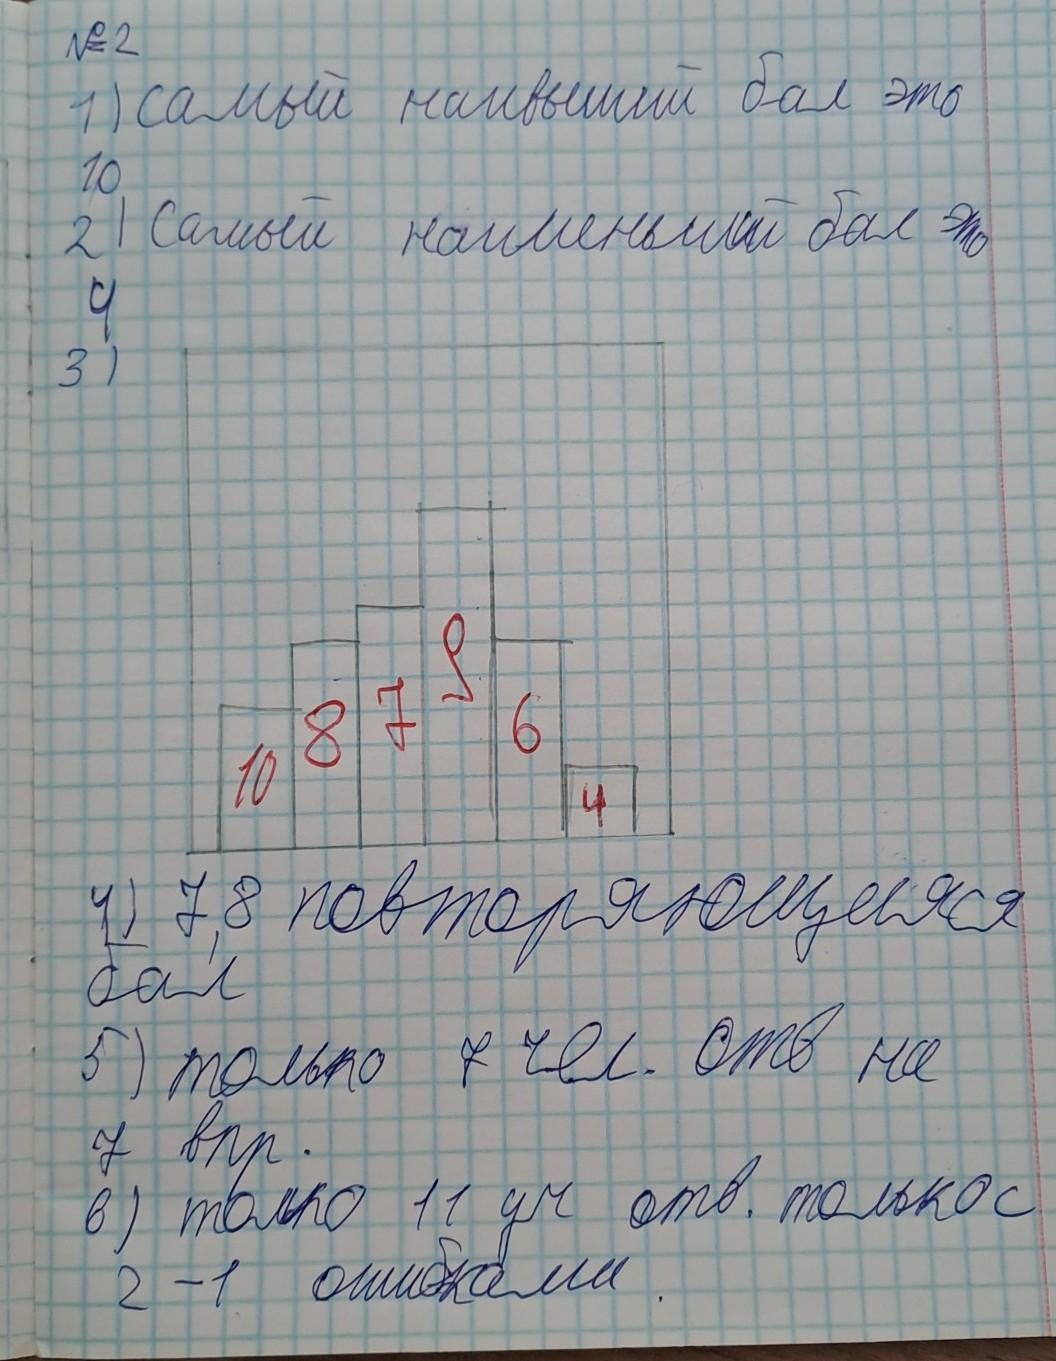 №2
1) самый наивысший бал это
10
2) Самый наименьший бал это
4
3)
10 8 7 9 6 4
4) 7,8 повторяющиеяся
бал
5) только 7 чел. отв на
7 впр.
6) толко 11 уч отв. только с
2-1 ошибками.